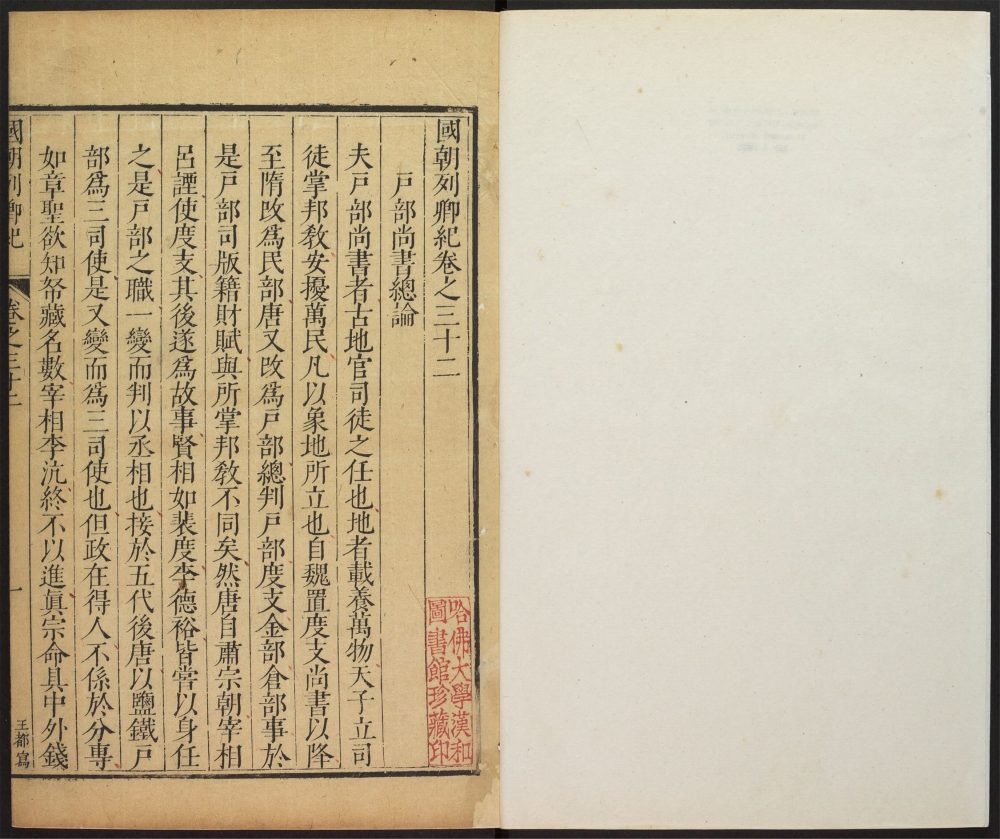 國朝列卿紀卷之三十二
戸部尚書總論
夫戸部尚書者古地官司徒之任也地者載養萬物天子立司
徒掌邦敎安擾萬民凡以象地所立也自魏置度支尚書以降
至隋改爲民部唐又改爲戸部總判戸部度支金部倉部事於
是戸部司版籍財賦與所掌邦敎不同矣然唐自肅宗朝宰相
呂諲使度支其後遂爲故事賢相如裴度李德裕皆嘗以身任
之是戸部之職一變而判以丞相也接於五代後唐以鹽鐵戸
部爲三司使是又變而爲三司使也但政在得人不係於分專
如章聖欲知帑藏名數宰相李沆終不以進眞宗命具中外錢
國朝列卿紀
卷之三十二
一
王都寫
哈佛大學漢和
圖書館珍藏印